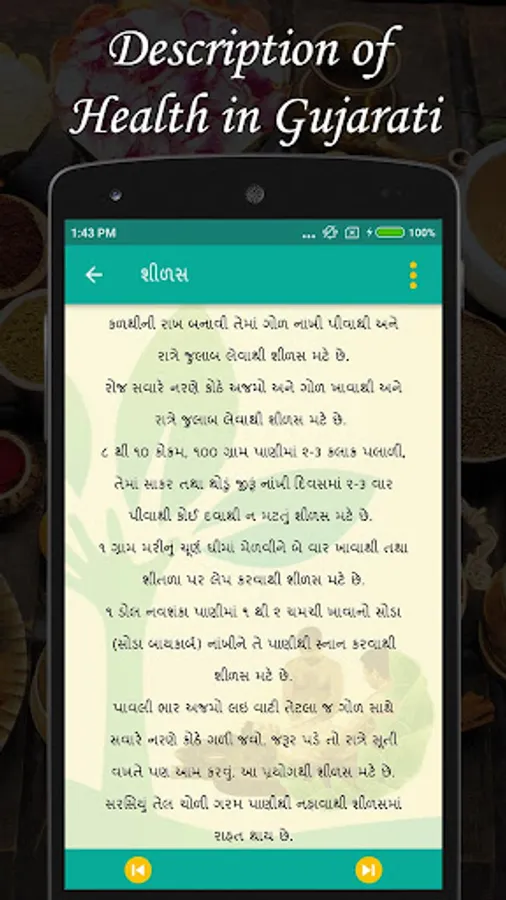 Description of
Health in Gujarati
1:43 PM
... 100%
શીળસ
કળથીની રાખ બનાવી તેમાં ગોળ નાખી પીવાથી અને
રાત્રે જુલાબ લેવાથી શીળસ મટે છે.
રોજ સવારે નરણે કોઠે અજમો અને ગોળ ખાવાથી અને
રાત્રે જુલાબ લેવાથી શીળસ મટે છે.
૮ થી ૧૦ કોકમ, ૧૦૦ ગ્રામ પાણીમાં ૨-૩ કલાક પલાળી,
તેમાં સાકર તથા થોડું જીરૂ નાંખી દિવસમાં ૨-૩ વાર
પીવાથી કોઈ દવાથી ન મટતું શીળસ મટે છે.
૧ ગ્રામ મરીનું ચૂર્ણ ઘીમાં મેળવીને બે વાર ખાવાથી તથા
શીતળા પર લેપ કરવાથી શીળસ મટે છે.
૧ ડોલ નવશંકા પાણીમાં ૧ થી ૨ ચમચી ખાવાનો સોડા
(સોડા બાયકાર્બ) નાંખીને તે પાણીથી સ્નાન કરવાથી
શીળસ મટે છે.
પાવલી ભાર અજમો લઇ વાટી તેટલા જ ગોળ સાથે
સવારે નરણે કોઠે ગળી જવો. જરૂર પડે તો રાત્રે સૂતી
વખતે પણ આમ કરવું. આ પ્રયોગથી શીળસ મટે છે.
સરસિયું તેલ ચોળી ગરમ પાણીથી નહાવાથી શીળસમાં
રાહત થાય છે.